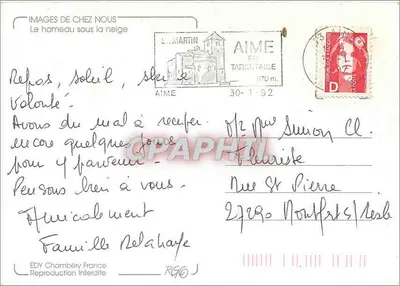 IMAGES DE CHEZ NOUS
Le hameau sous la neige
ST MARTIN
AIME
EN
TARENTAISE
670 m.
AIME
30-1-92
D
Repos, soleil, ski à
volonté.
Avons du mal à récupérer
encore quelques jours
pour y parvenir.
Pensons bien à vous.
Amicalement
Famille Delahaye
Mr Mme Simon Cl.
Fleuriste
Rue St Pierre
27290 Montfort s/ Risle
CPAPHIL
EDY Chambéry France
Reproduction Interdite